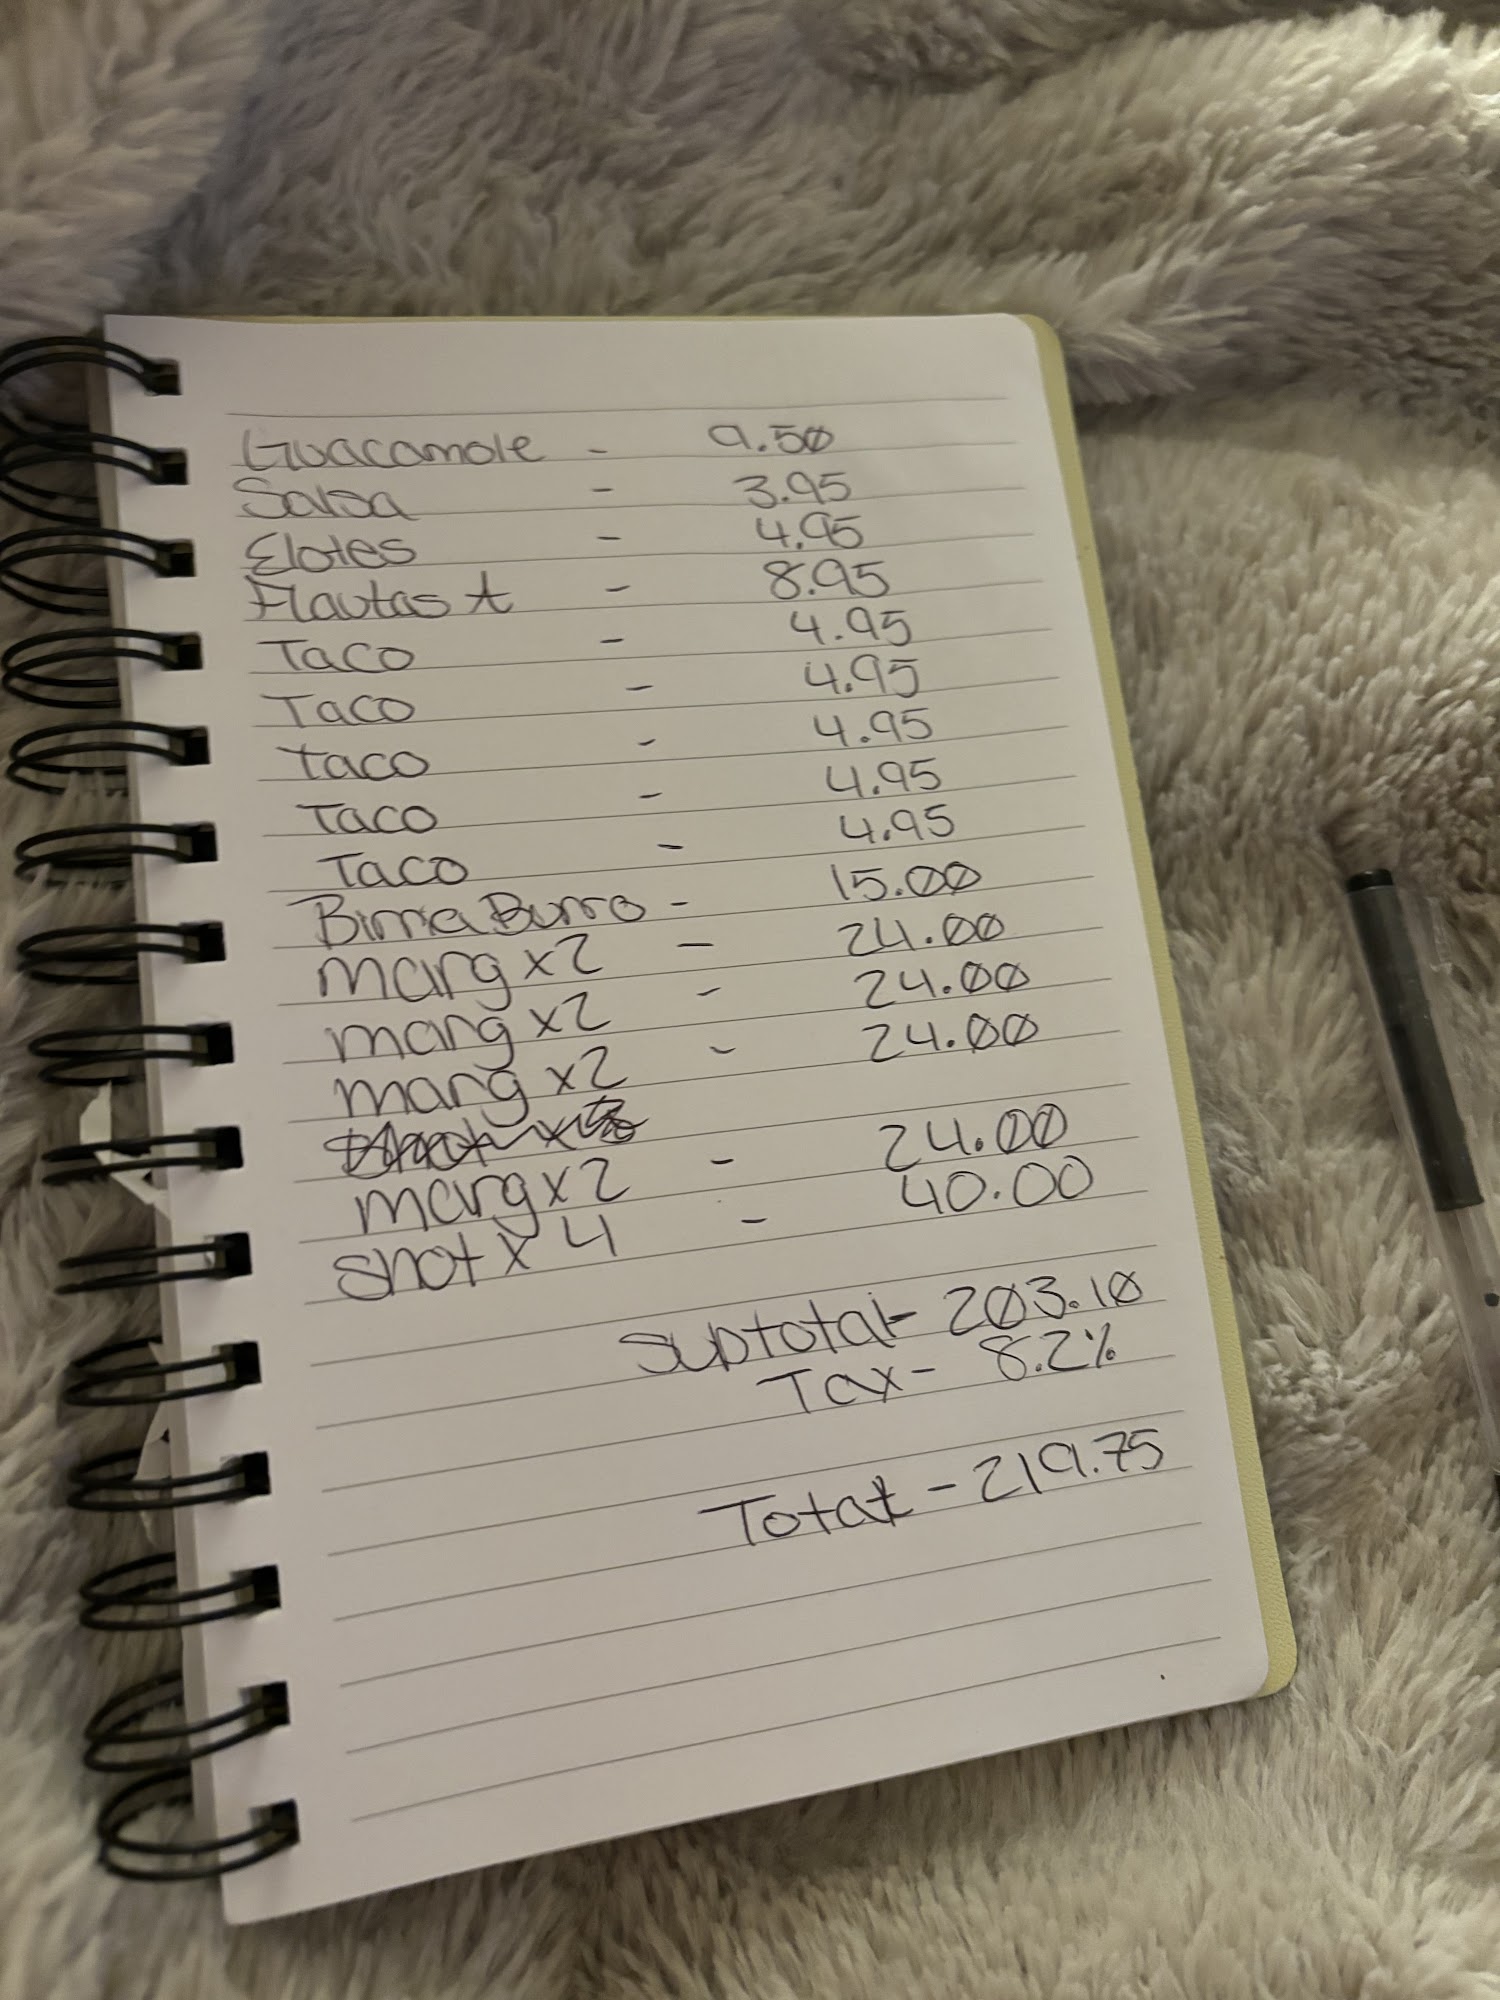 Guacamole - 9.50
Salsa - 3.95
Elotes - 4.95
Flautas A - 8.95
Taco - 4.95
Taco - 4.95
taco - 4.95
Taco - 4.95
Taco - 4.95
Birria Burro - 15.00
marg x2 - 24.00
marg x2 - 24.00
marg x2 - 24.00
marg x2 - 24.00
shot x 4 - 40.00
subtotal - 203.10
Tax - 8.2%
Total - 219.75